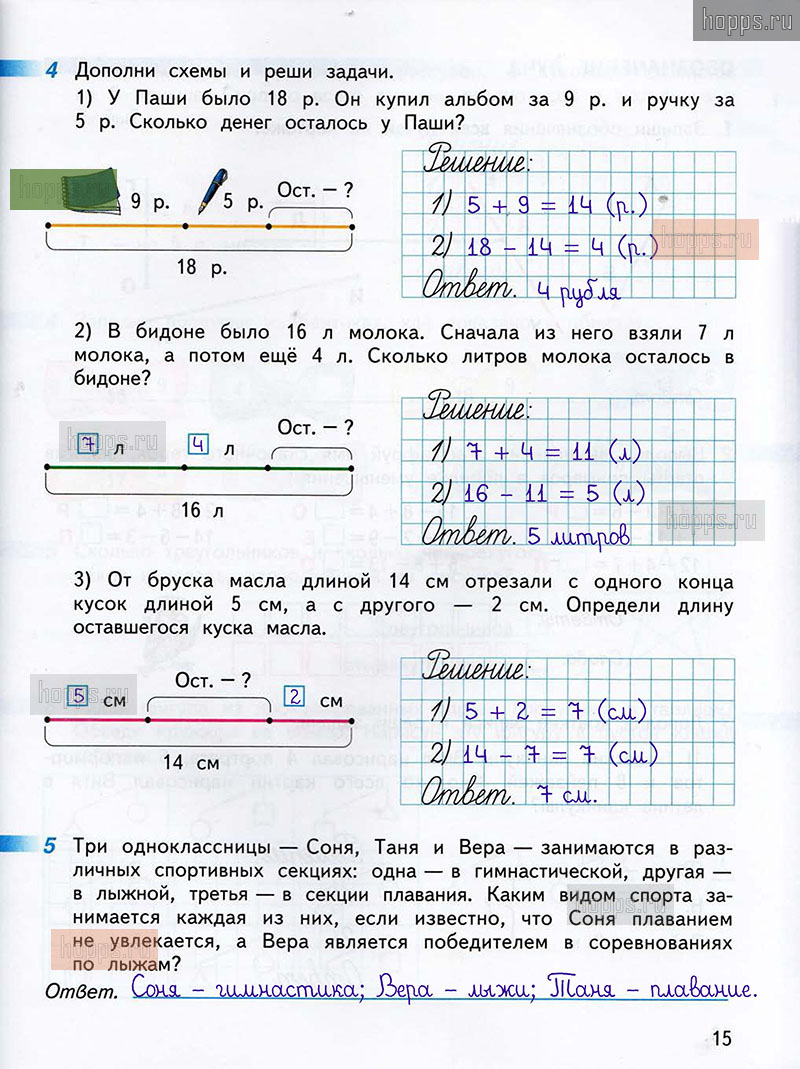 hopps.ru
4 Дополни схемы и реши задачи.
1) У Паши было 18 р. Он купил альбом за 9 р. и ручку за
5 р. Сколько денег осталось у Паши?
hopps.ru
9 р. 5 р. Ост. – ?
18 р.
Решение:
1) 5 + 9 = 14 (р.)
2) 18 – 14 = 4 (р.)
hopps.ru
Ответ. 4 рубля
2) В бидоне было 16 л молока. Сначала из него взяли 7 л
молока, а потом ещё 4 л. Сколько литров молока осталось в
бидоне?
hopps.ru
7 л 4 л Ост. – ?
16 л
Решение:
1) 7 + 4 = 11 (л)
2) 16 – 11 = 5 (л)
hopps.ru
Ответ. 5 литров
3) От бруска масла длиной 14 см отрезали с одного конца
кусок длиной 5 см, а с другого — 2 см. Определи длину
оставшегося куска масла.
hopps.ru
5 см Ост. – ? 2 см
14 см
Решение:
1) 5 + 2 = 7 (см)
2) 14 – 7 = 7 (см)
Ответ. 7 см.
5 Три одноклассницы — Соня, Таня и Вера — занимаются в раз-
личных спортивных секциях: одна — в гимнастической, другая —
в лыжной, третья — в секции плавания. Каким видом спорта за-
нимается каждая из них, если известно, что Соня плаванием
не увлекается, а Вера является победителем в соревнованиях
по лыжам?
hopps.ru
hopps.ru
Ответ. Соня – гимнастика; Вера – лыжи; Таня – плавание.
15